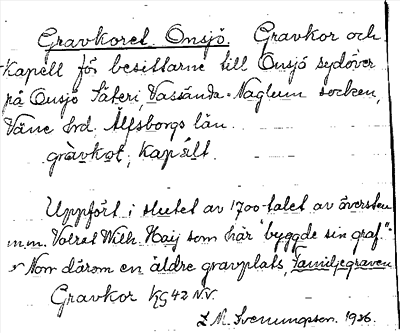 Gravkoret. Onsjö. Gravkor och
kapell för besittarne till Onsjö sydöver
på Onsjö Säteri, Vassända-Naglum socken,
Väne hrd. Älfsborgs län.
gràvkọt, kapä́lt.
Uppfört i slutet av 1700-talet av översten
m.m. Volrat Wilh. Haij som här "byggde sin graf."
Norr därom en äldre gravplats, Familjegraven
Gravkor KG 42 N.V.
Z. M. Svenungsson. 1926.